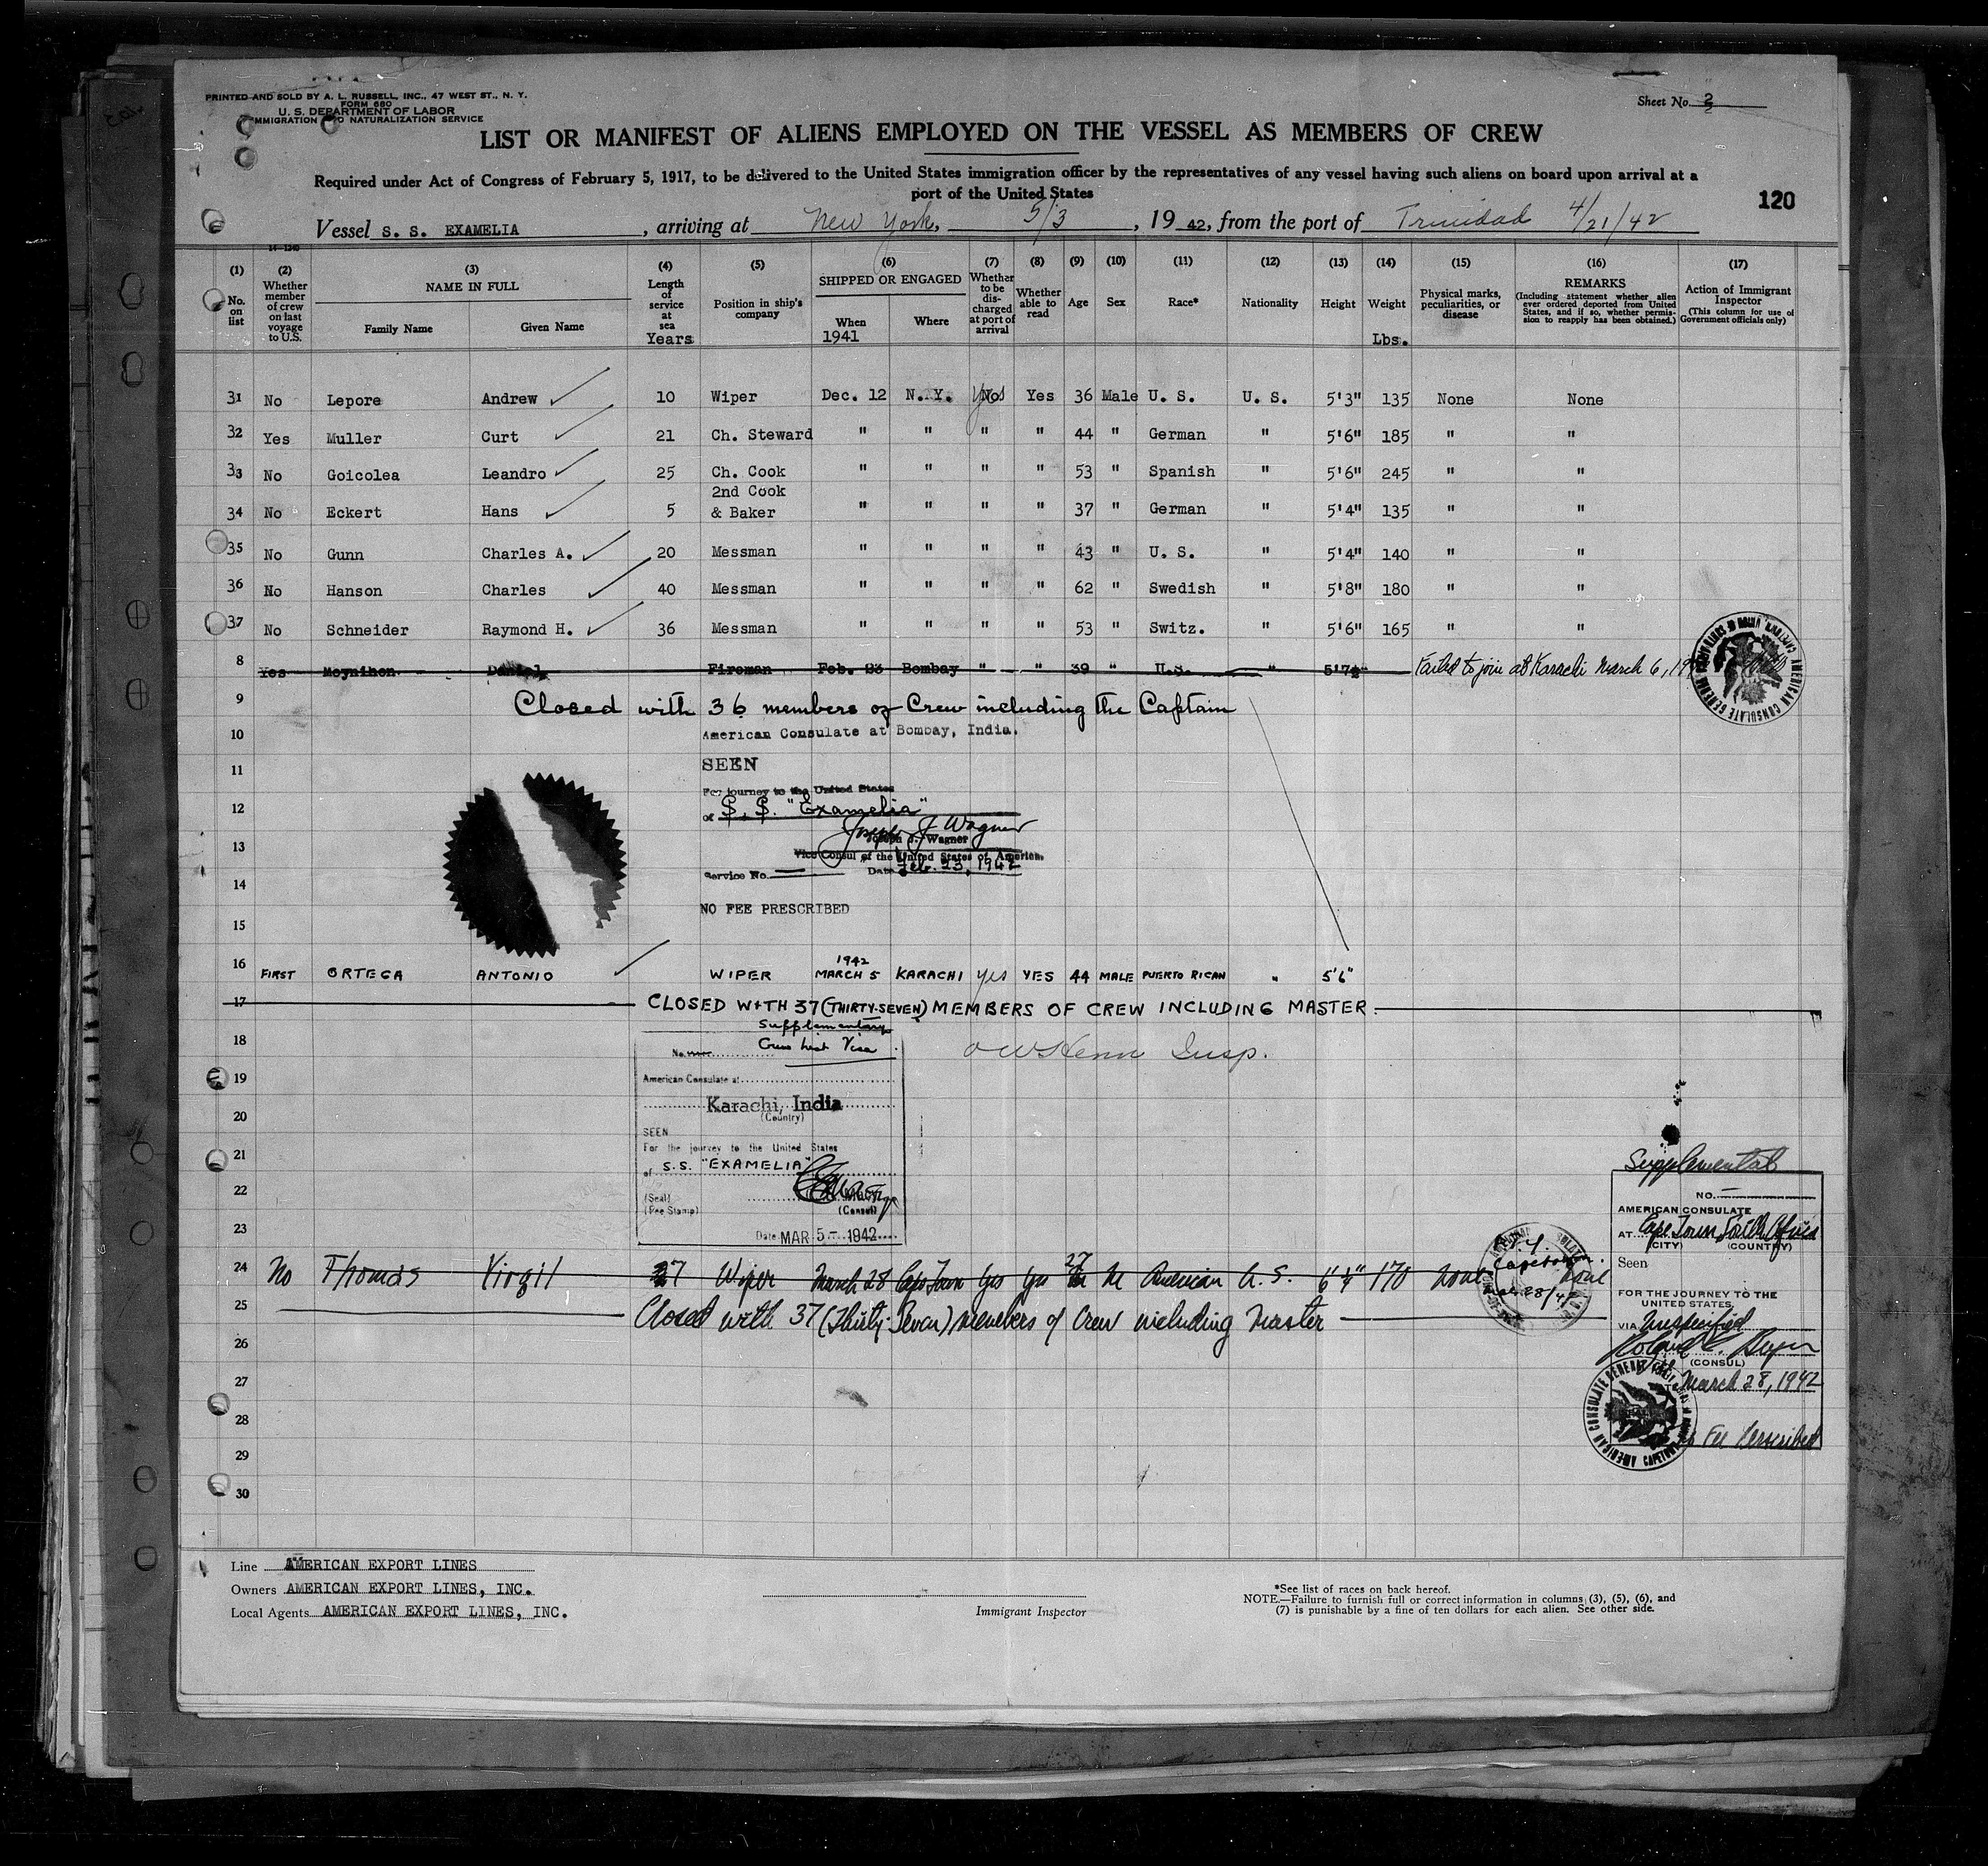 PRINTED AND SOLD BY A. L. RUSSELL, INC., 47 WEST ST., N. Y.
FORM 680
U. S. DEPARTMENT OF LABOR
IMMIGRATION AND NATURALIZATION SERVICE
Sheet No. 2
LIST OR MANIFEST OF ALIENS EMPLOYED ON THE VESSEL AS MEMBERS OF CREW
Required under Act of Congress of February 5, 1917, to be delivered to the United States immigration officer by the representatives of any vessel having such aliens on board upon arrival at a
port of the United States
120
Vessel S. S. EXAMELIA, arriving at New York, 5/3, 19 42, from the port of Trinidad 4/21/42
14-1240
(1) No. on list
(2) Whether member of crew on last voyage to U.S.
(3) NAME IN FULL Family Name Given Name
(4) Length of service at sea Years
(5) Position in ship's company
(6) SHIPPED OR ENGAGED When 1941 Where
(7) Whether to be discharged at port of arrival
(8) Whether able to read
(9) Age
(10) Sex
(11) Race*
(12) Nationality
(13) Height
(14) Weight Lbs.
(15) Physical marks, peculiarities, or disease
(16) REMARKS (Including statement whether alien ever ordered deported from United States, and if so, whether permission to reapply has been obtained.)
(17) Action of Immigrant Inspector (This column for use of Government officials only)
31 No Lepore Andrew 10 Wiper Dec. 12 N. Y. No yes Yes 36 Male U. S. U. S. 5'3" 135 None None
32 Yes Muller Curt 21 Ch. Steward " " " " 44 " German " 5'6" 185 " "
33 No Goicolea Leandro 25 Ch. Cook " " " " 53 " Spanish " 5'6" 245 " "
34 No Eckert Hans 5 2nd Cook & Baker " " " " 37 " German " 5'4" 135 " "
35 No Gunn Charles A. 20 Messman " " " " 43 " U. S. " 5'4" 140 " "
36 No Hanson Charles 40 Messman " " " " 62 " Swedish " 5'8" 180 " "
37 No Schneider Raymond H. 36 Messman " " " " 53 " Switz. " 5'6" 165 " "
8 Yes Moynihon Daniel Fireman Feb. 23 Bombay " " 39 " U.S. " 5'7½" Failed to join at Karachi March 6, 19
9 Closed with 36 members of Crew including the Captain
10 American Consulate at Bombay, India.
11 SEEN
For journey to the United States
12 of S. S. "Examelia"
Joseph J Wagner
13 Joseph J. Wagner
Vice Consul of the United States of America.
14 Service No. Date Feb. 23, 1942
NO FEE PRESCRIBED
15
16 FIRST ORTEGA ANTONIO WIPER 1942 MARCH 5 KARACHI yes YES 44 MALE PUERTO RICAN " 5'6"
17 CLOSED WITH 37 (THIRTY-SEVEN) MEMBERS OF CREW INCLUDING MASTER
Supplementary
18 No. Crew List Visa
Insp.
19 American Consulate at
Karachi, India
20 (Country)
SEEN
21 For the journey to the United States
of S.S. "EXAMELIA"
22 (Seal)
(Fee Stamp) (Consul)
23 Date MAR 5- 1942
24 No Thomas Virgil 7 Wiper March 28 Cape Town Yes Yes 27 M American U. S. 170 None None
25 Closed with 37 (Thirty-Seven) members of Crew including Master
26
27
28
29
30
AMERICAN CONSULATE GENERAL
Capetown
Supplemental
NO.
AMERICAN CONSULATE
AT Cape Town, South Africa
(CITY) (COUNTRY)
Seen
FOR THE JOURNEY TO THE
UNITED STATES,
VIA Unspecified
(CONSUL)
March 28, 1942
No Fee Prescribed
AMERICAN CONSULATE GENERAL
Line AMERICAN EXPORT LINES
Owners AMERICAN EXPORT LINES, INC.
Local Agents AMERICAN EXPORT LINES, INC.
Immigrant Inspector
*See list of races on back hereof.
NOTE.—Failure to furnish full or correct information in columns (3), (5), (6), and
(7) is punishable by a fine of ten dollars for each alien. See other side.